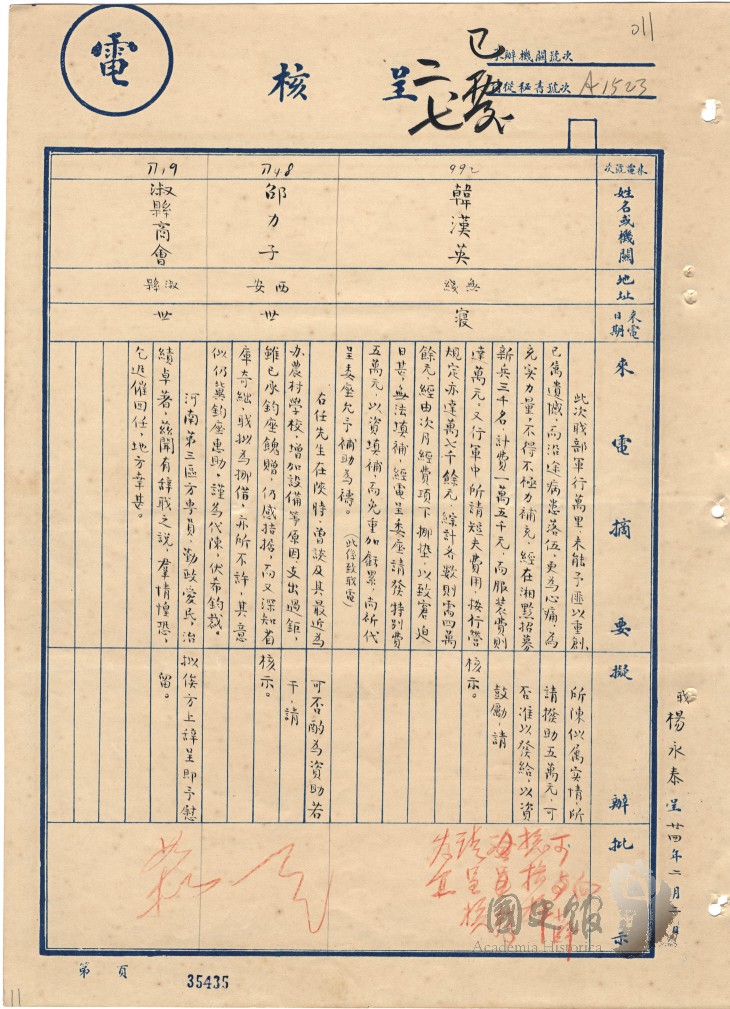 011
電
核呈
已發
二七
來辦機關號次
侍從秘書號次 A1523
來電號次
姓名或機關
地址
來電日期
來電摘要
擬辦
批示
992
韓漢英
無綫
寢
此次職部軍行萬里,未能予匪以重創,
已屬遺憾,而沿途病患落伍,更為心痛,為
充實力量,不得不極力補充,經在湘黔招募
新兵三千名,計費一萬五千元,而服裝費則
達萬元。又行軍中所請短夫費用,按行營
規定亦達萬七千餘元,綜計各數則需四萬
餘元,經由次月經費項下挪墊,以致窘迫
日甚,無法填補,經電呈委座請發特別費
五萬元,以資填補,而免重加虧累,尚祈代
呈委座允予補助為禱。(此係致職電)
所陳似屬實情,所
請撥助五萬元,可
否准以發給,以資
鼓勵,請
核示。
邵力子
西安
世
右任先生在陝時,曾談及其最近為
办農村學校,增加設備等原因,支出過鉅,
雖已承鈞座餽贈,仍感拮据,而又深知省
庫奇絀,職擬為挪借,亦所不許,其意
似仍冀鈞座惠助,謹為代陳,伏希鈞裁。
可否酌為資助若
干,請
核示。
淑縣商會
淑縣
世
河南第三區方專員,勤政愛民,治
績卓著,兹聞有辭職之說,羣情惶恐,
乞迅催回任,地方幸甚。
擬俟方上辭呈即予慰
留。
職楊永泰呈 廿四年二月二日
國史館
Academia Historica
第 頁
35435
11